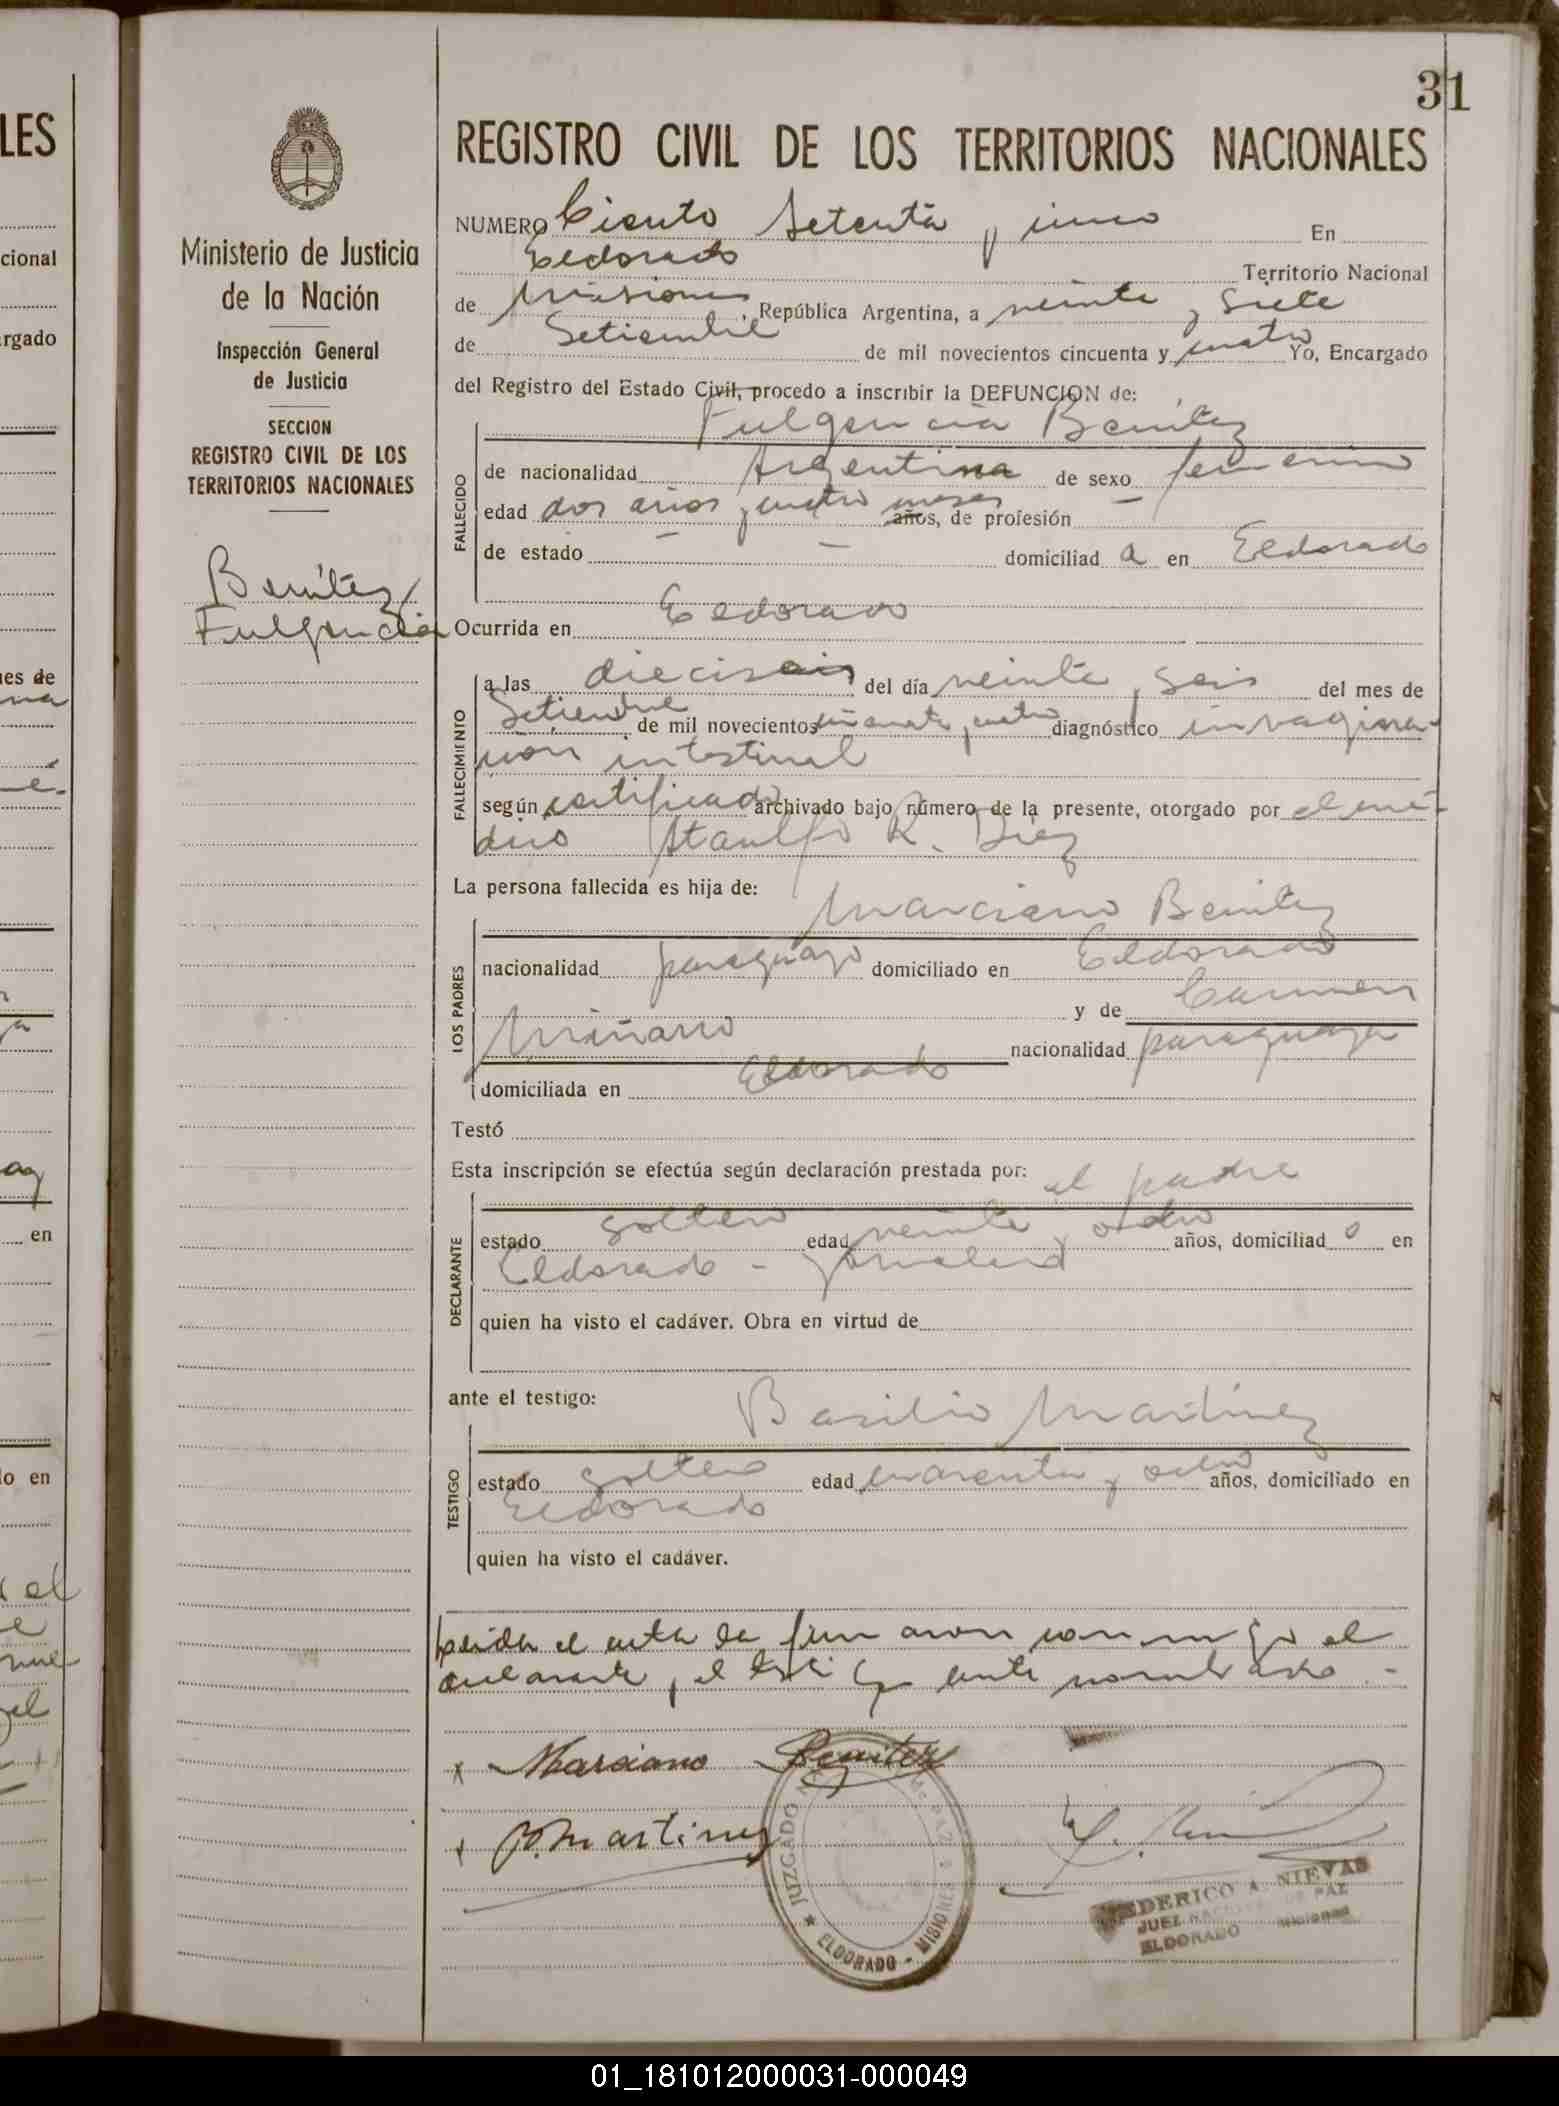 31
REGISTRO CIVIL DE LOS TERRITORIOS NACIONALES
Ministerio de Justicia
de la Nación
Inspección General
de Justicia
SECCION
REGISTRO CIVIL DE LOS
TERRITORIOS NACIONALES
Benítez
Fulgencia
NUMERO Ciento setenta y uno En
Eldorado Territorio Nacional
de Misiones, República Argentina, a veinte y siete
de Setiembre de mil novecientos cincuenta y cuatro Yo, Encargado
del Registro del Estado Civil, procedo a inscribir la DEFUNCION de:
Fulgencia Benítez
FALLECIDO
de nacionalidad Argentina de sexo femenino
edad dos años y cuatro meses años, de profesión —
de estado — domiciliad a en Eldorado
Ocurrida en Eldorado
FALLECIMIENTO
a las dieciseis del día veinte y seis del mes de
Setiembre de mil novecientos cincuenta y cuatro diagnóstico invagina-
ción intestinal
según certificado archivado bajo número de la presente, otorgado por el mé-
dico Ataulfo R. Diez
La persona fallecida es hija de:
Marciano Benítez
LOS PADRES
nacionalidad paraguayo domiciliado en Eldorado
y de Carmen
Miñarro nacionalidad paraguaya
domiciliada en Eldorado
Testó
Esta inscripción se efectúa según declaración prestada por: el padre
DECLARANTE
estado soltero edad veinte y ocho años, domiciliad o en
Eldorado - jornalero
quien ha visto el cadáver. Obra en virtud de
ante el testigo:
Basilio Martínez
TESTIGO
estado soltero edad cuarenta y ocho años, domiciliado en
Eldorado
quien ha visto el cadáver.
Leída el acta la firmaron conmigo el
declarante y el testigo ante nombrado -
x Marciano Benitez
x B. Martinez
JUZGADO DE PAZ
★ ELDORADO - MISIONES
FEDERICO A. NIEVAS
JUEZ DE PAZ
ELDORADO Misiones
LES
cional
rgado
es de
en
o en
01_181012000031-000049